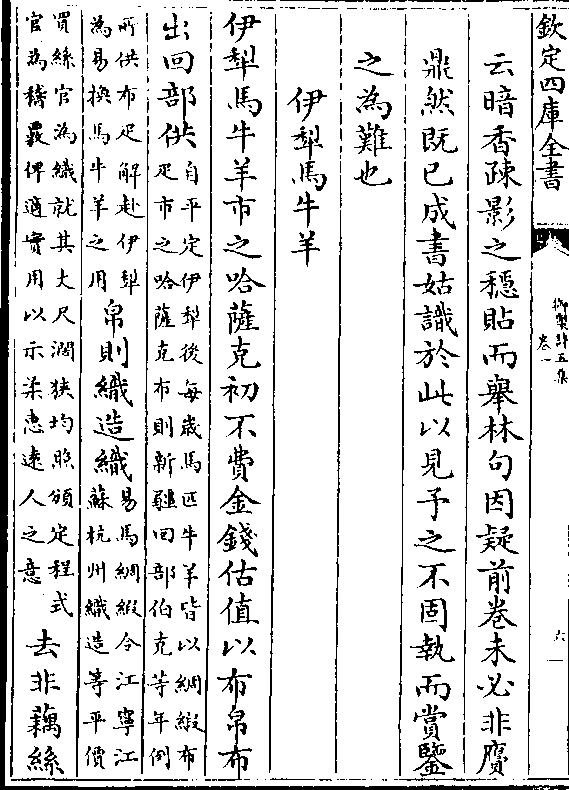 欽定四庫全書
御製詩五集
卷一
六
云暗香疎影之穩貼而舉林句因疑前卷未必非贗
鼎然既已成書姑識於此以見予之不固執而賞鑒
之為難也
伊犁馬牛羊
伊犁馬牛羊市之哈薩克初不費金錢估值以布帛布
出回部供
自平定伊犁後每歲馬匹牛羊皆以綢緞布
疋市之哈薩克布則新疆回部伯克等年例
所供布疋解赴伊犁
為易換馬牛羊之用
帛則織造織
易馬綢緞令江寧江
蘇杭州織造等平價
買絲官為織就其丈尺濶狹均照頒定程式
官為稽覈俾適實用以示柔惠遠人之意
去非藕絲